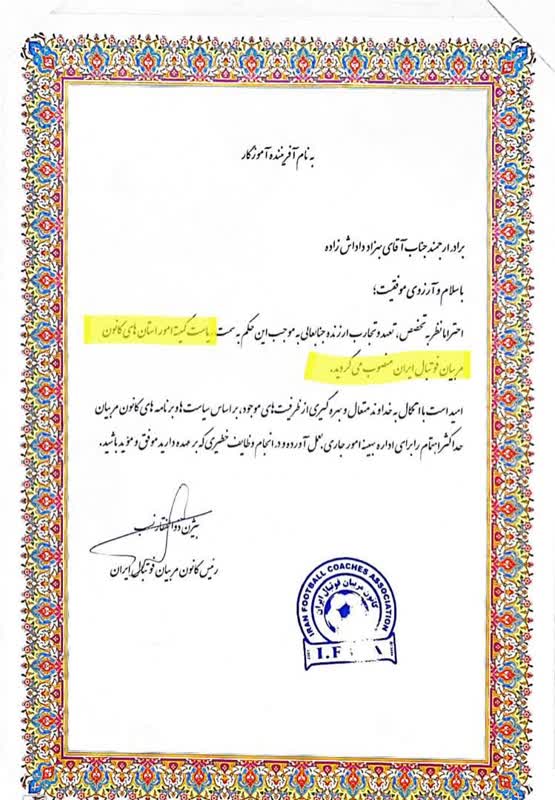 به نام آفریننده آموزگار
برادر ارجمند جناب آقای بهزاد داداش زاده
با سلام و آرزوی موفقیت؛
احتراما نظر به تخصص، تعهد و تجارب ارزنده جنابعالی به موجب این حکم به سمت ریاست کمیته امور استان های کانون
مربیان فوتبال ایران منصوب می گردید.
امید است با اتکال به خداوند متعال و بهره گیری از ظرفیت های موجود، بر اساس سیاست ها و برنامه های کانون مربیان
حداکثر اهتمام را برای اداره بهینه امور جاری، بعمل آورده و در انجام وظایف خطیری که بر عهده دارید موفق و مؤید باشید.
بیژن ذوالفقارنسب
رئیس کانون مربیان فوتبال ایران
IRAN FOOTBALL COACHES ASSOCIATION
کانون مربیان فوتبال ایران
I.F